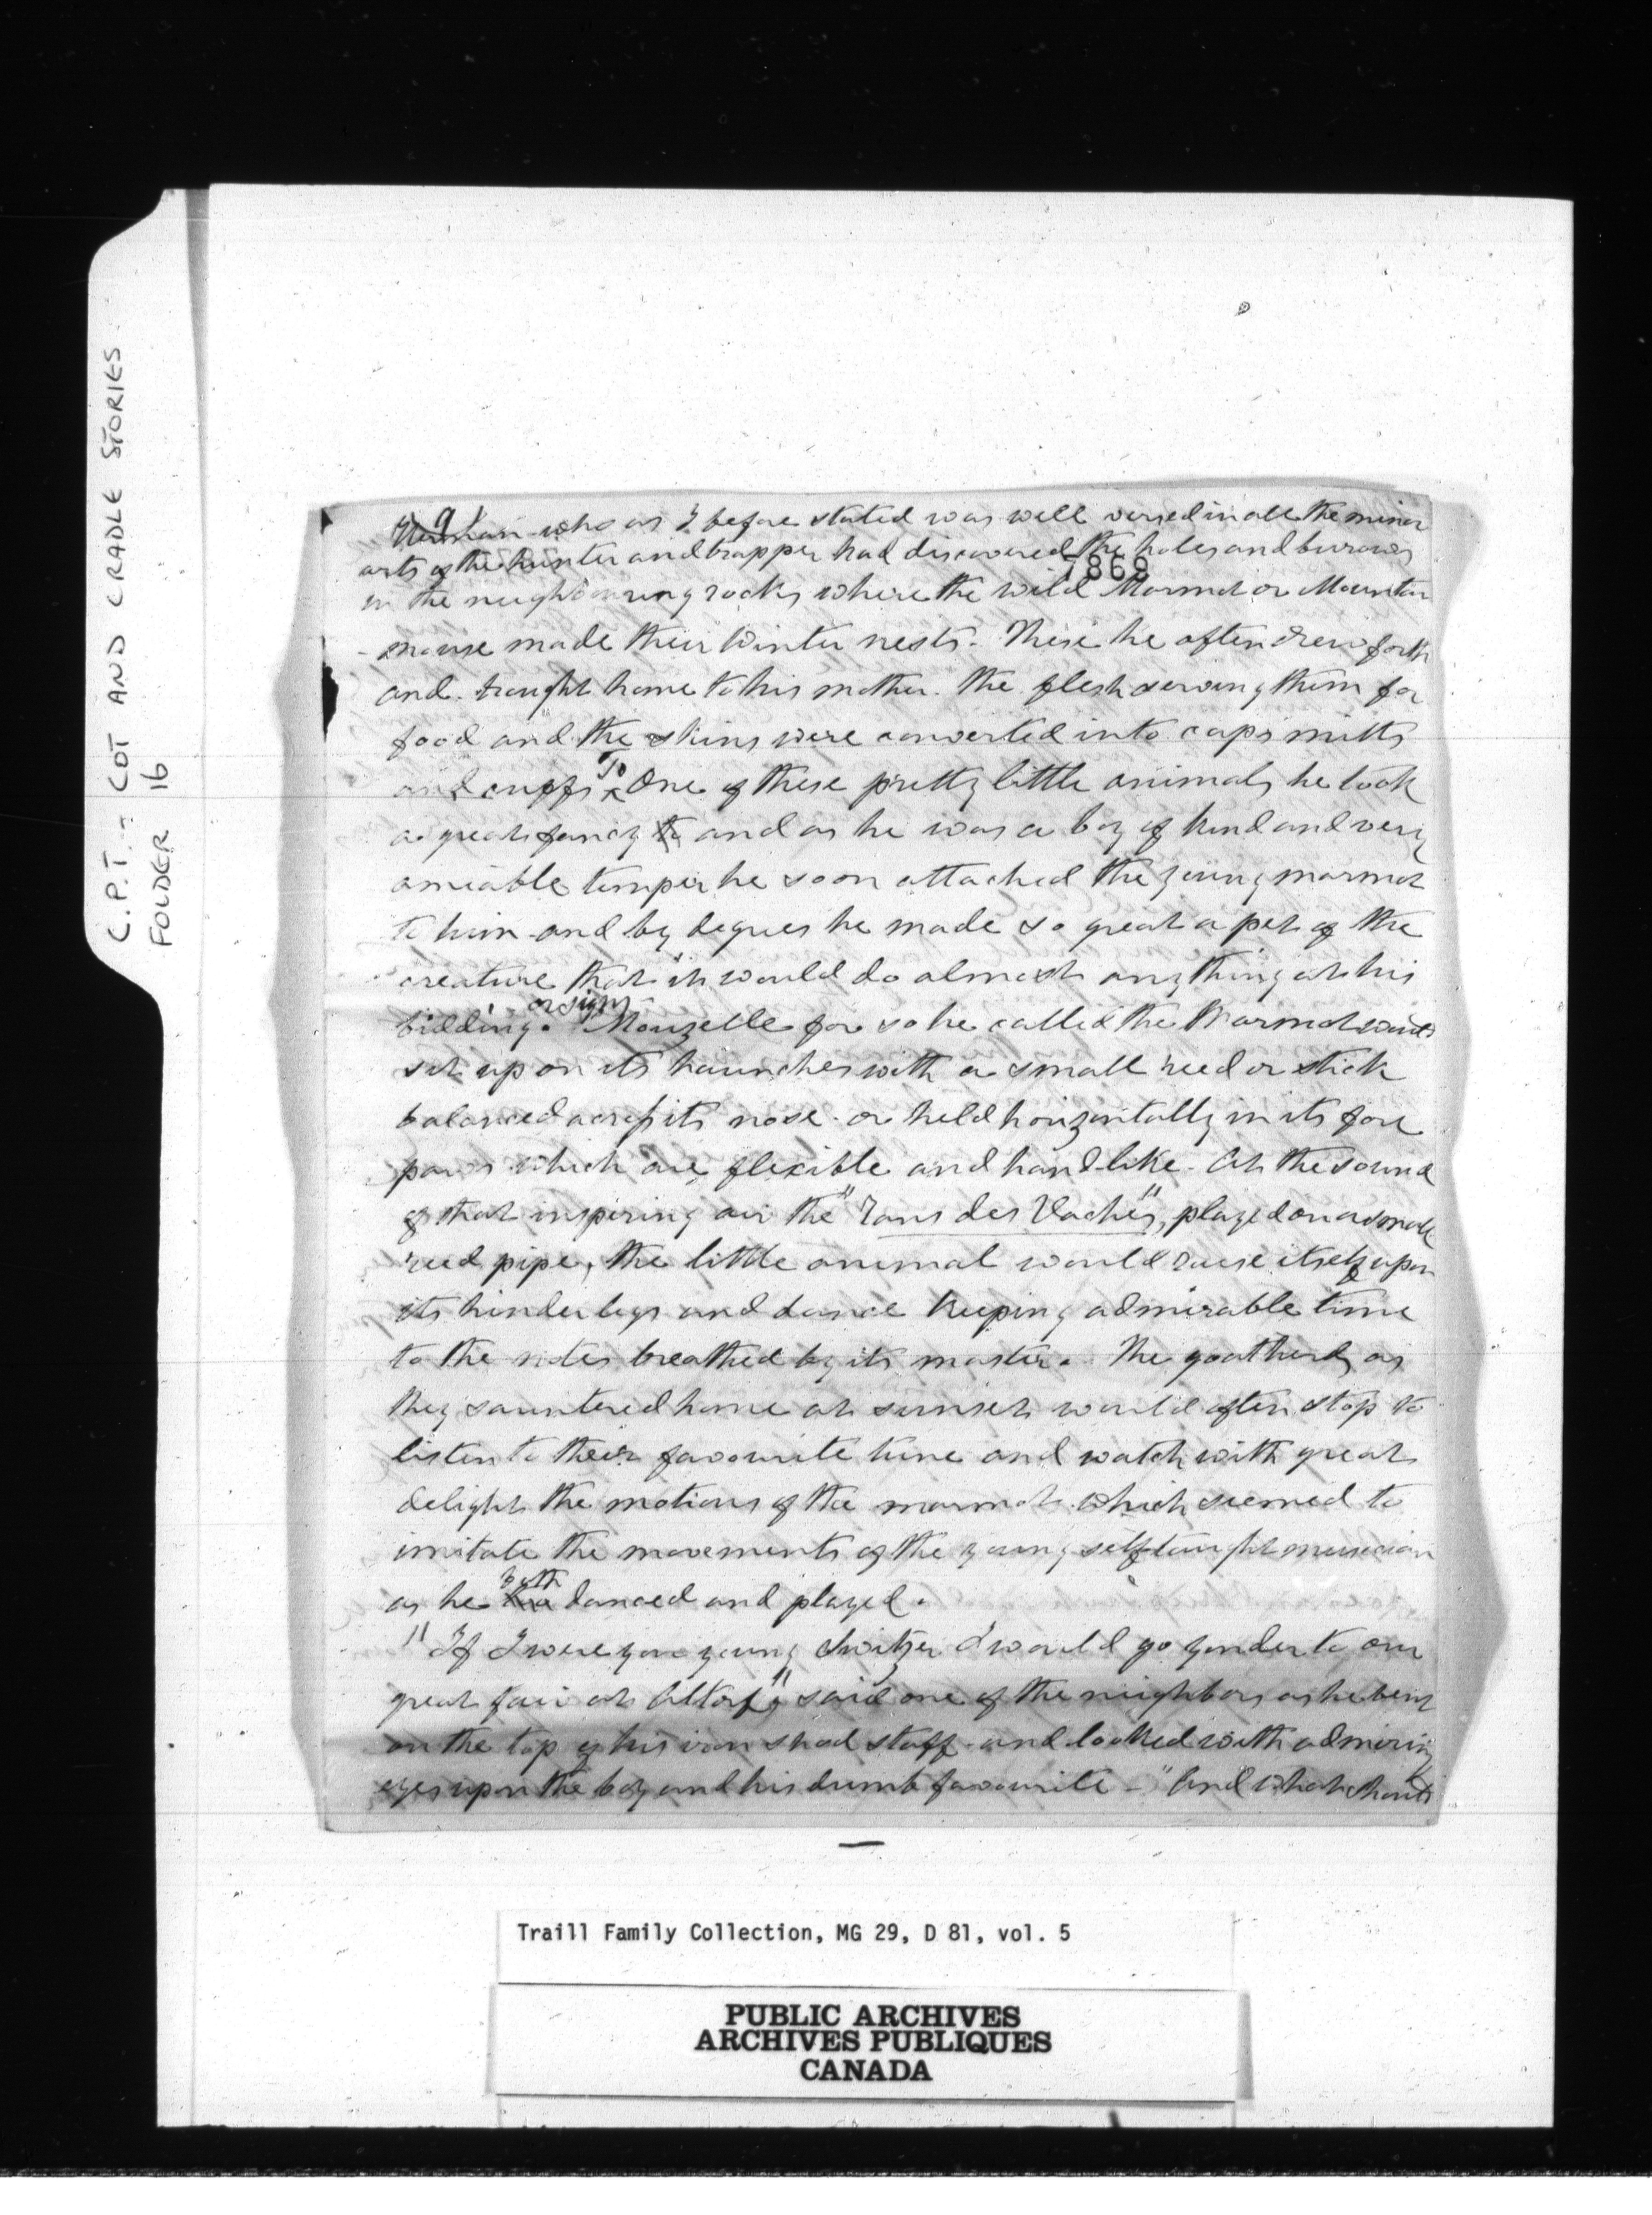 C.P.T. - COT AND CRADLE STORIES
FOLDER 16
9
Herman who as I before stated was well versed in all the minor
arts of the hunter and trapper had discovered the holes and burows
7869
in the neighbouring rocks where the wild Marmot or Mountain
mouse made their Winter nests. These he often drew forth
and brought home to his mother. the flesh serving them for
food and the skins were converted into caps mitts
and cuffs To One of these pretty little animals he took
a great fancy to and as he was a boy of kind and very
ameable temper he soon attached the young marmot
to him and by degrees he made so great a pet of the
creature that it would do almost any thing at his
or sign
bidding. Mouzelle for so he called the Marmot would
sit up on its haunches with a small reed or stick
balanced across its nose or held horizontally in its fore
paws which are flexible and hand-like. At the sound
of that inspiring air the "Rans des Vaches", played on a small
reed pipe, the little animal would raise itself upon
its hinder legs and dance keeping admirable time
to the notes breathed by its master. The goatherds as
they sauntered home at sunset would often stop to
listen to their favourite tune and watch with great
delight the motions of the marmot which seemed to
imitate the movements of the young self taught musician
as he both danced and played.
"If I were you young Switzer I would go yonder to our
great fair at Altorf" said one of the neighbors as he bent
on the top of his iron shod staff and looked with admiring
eyes upon the boy and his dumb favourite - "And what should
Traill Family Collection, MG 29, D 81, vol. 5
PUBLIC ARCHIVES
ARCHIVES PUBLIQUES
CANADA